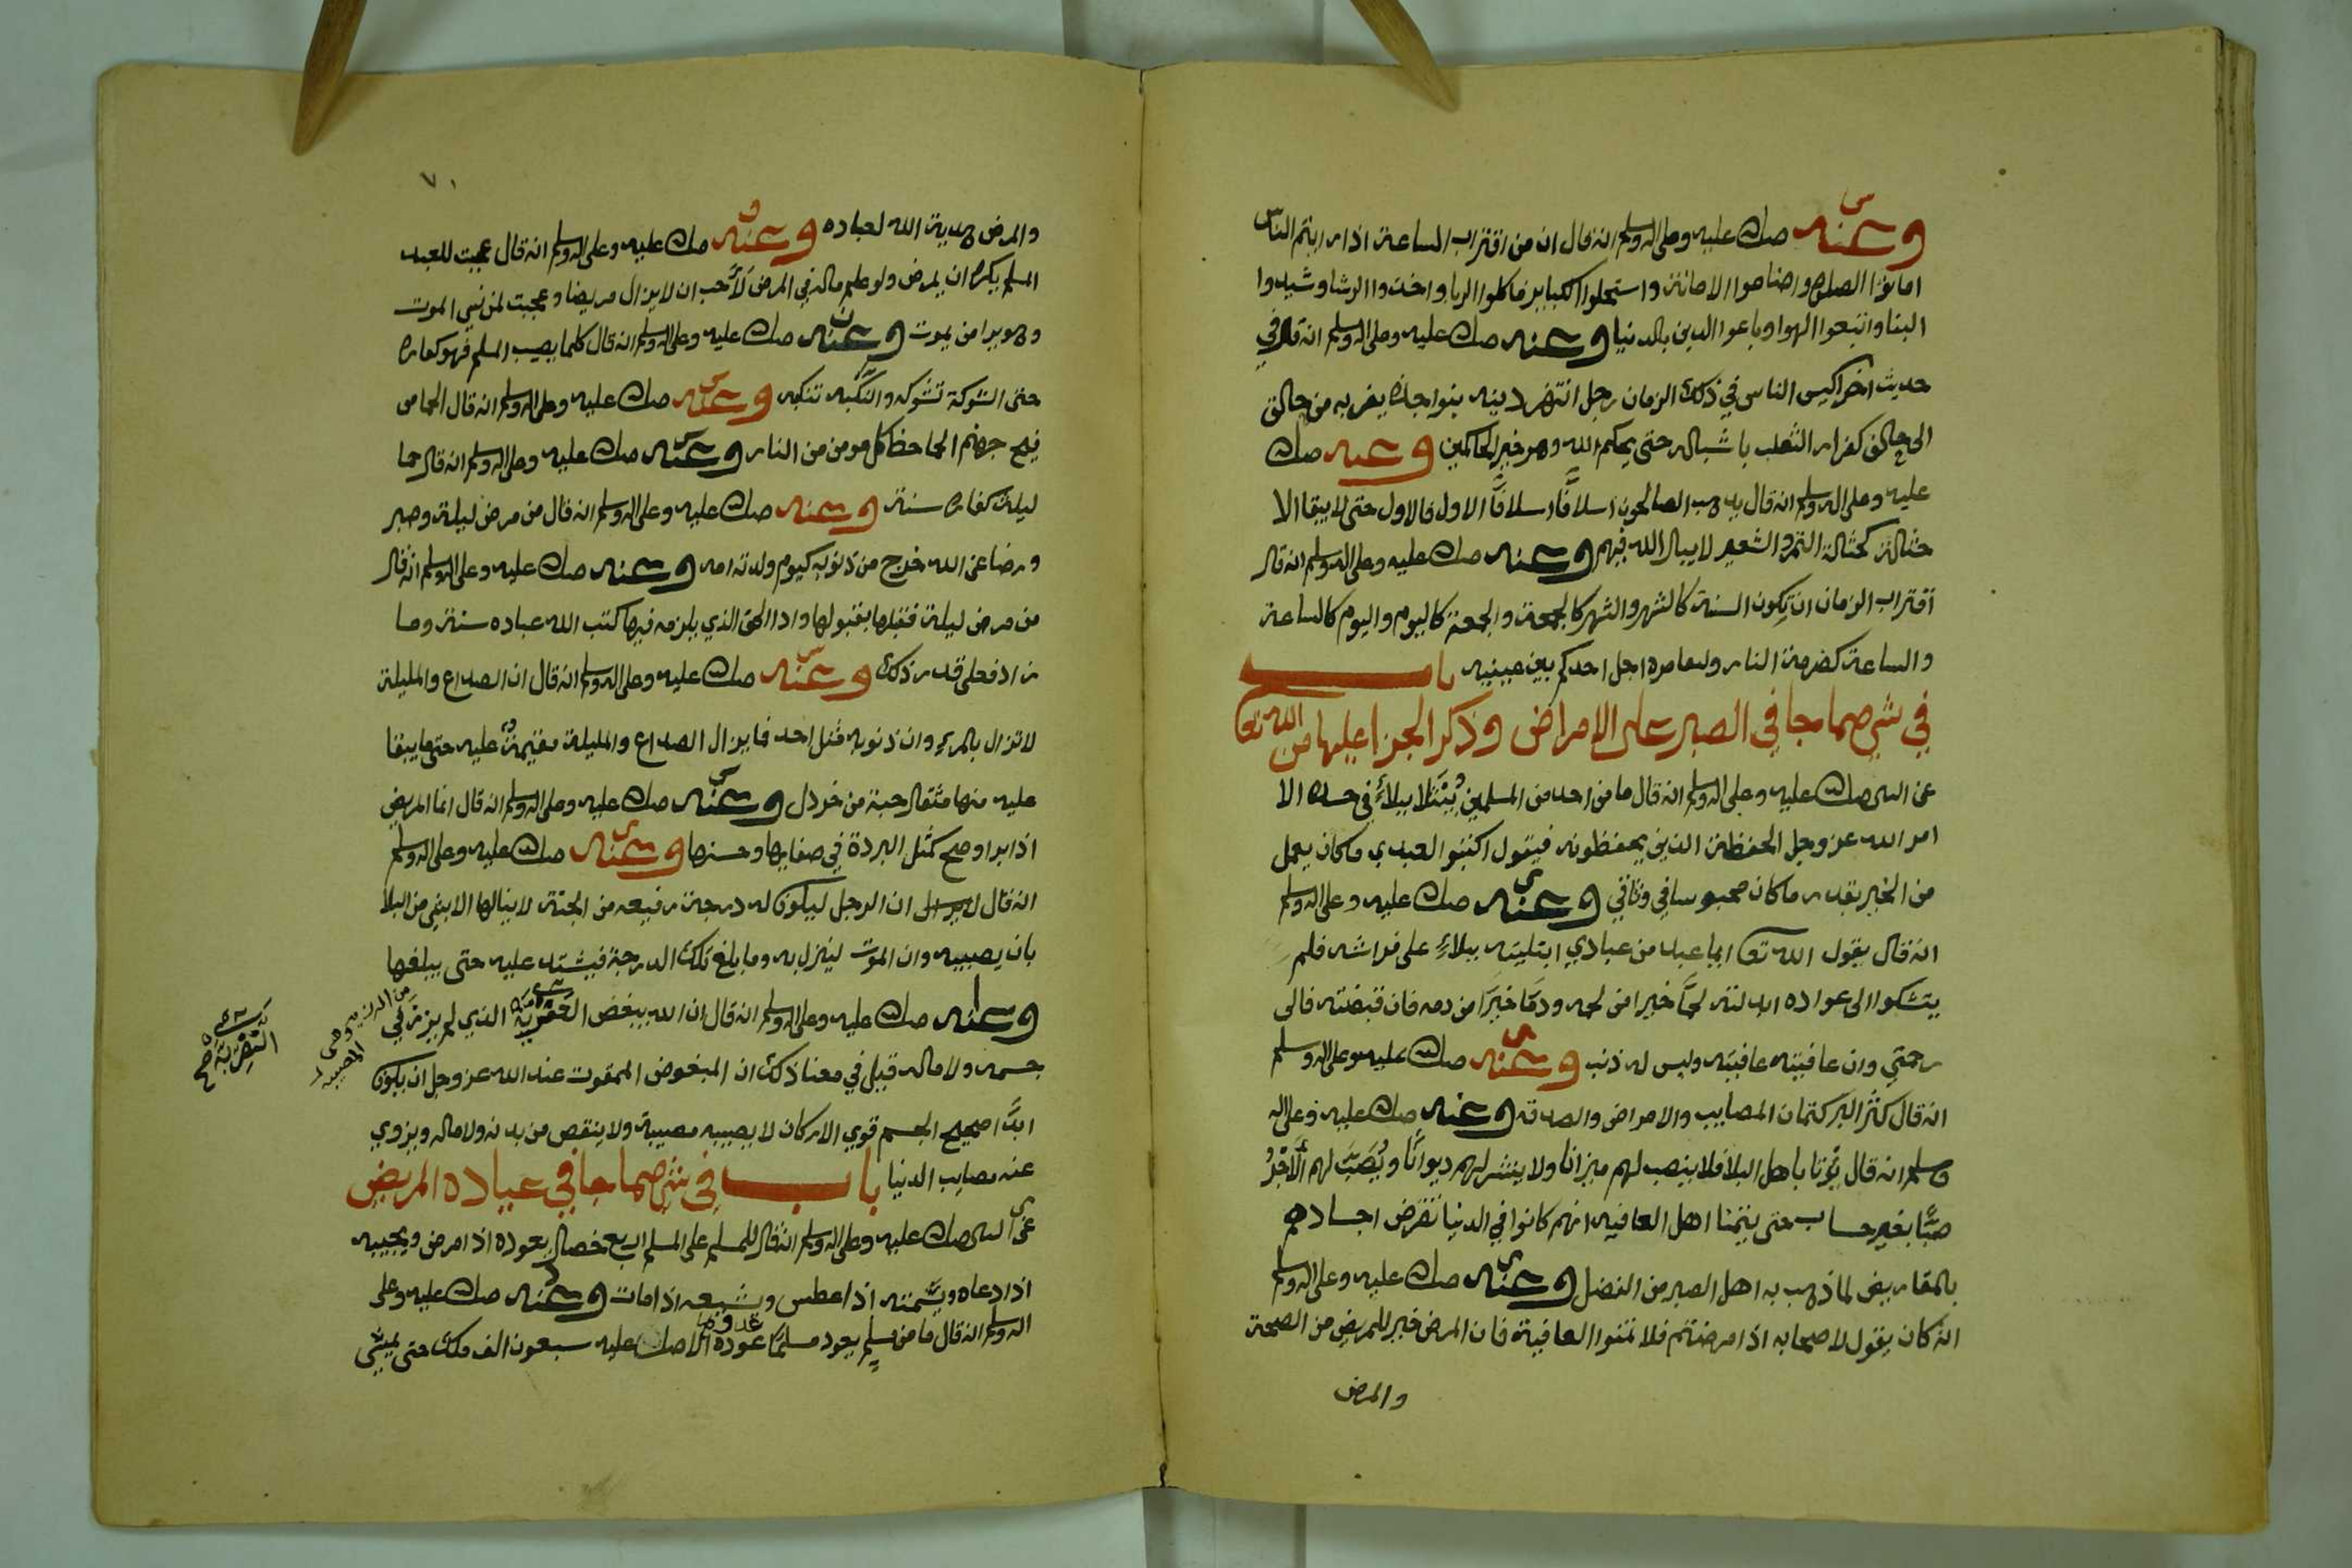 وعنه صلى الله عليه وعلى اله وسلم انه قال ان من اقتراب الساعة اذا رايتم الناس
اماتوا الصلوه واضاعوا الامانة واستحلوا الكباير فاكلوا الربا واخذوا الرشا وشيدوا
البنا واتبعوا الهوا وباعوا الدين بالدنيا وعنه صلى الله عليه وعلى اله وسلم انه قال في
حديث اخر اكيس الناس في ذلك الزمان رجل انتهز دينه بنواجذه يفر به من حالق
الى حالق كفرار الثعلب باشباله حتى يحكم الله وهو خير الحاكمين وعنه صلى الله
عليه وعلى اله وسلم انه قال يذهب الصالحون اسلافًا اسلافًا الاول فالاول حتى لا يبقا الا
حثالة كحثالة التمر والشعير لا يبال الله فيهم وعنه صلى الله عليه وعلى اله وسلم انه قال
اقتراب الزمان ان تكون السنة كالشهر والشهر كالجمعة والجمعة كاليوم واليوم كالساعة
والساعة كضرمة النار بين عينيه باب
في شي مما جا في الصبر على الامراض وذكر الجزا عليها من الله تعا
عن النبى صلى الله عليه وعلى اله وسلم انه قال ما من احد من المسلمين يُبْتَلا ببلاءٍ في جسده الا
امر الله عز وجل الحفظة الذين يحفظونه فيقول اكتبوا لعبدي ما كان يعمل
من الخير بقدر ما كان محبوسا في وثاقي وعنه صلى الله عليه وعلى اله وسلم
انه قال يقول الله تعا ايما عبد من عبادي ابتليته ببلاءٍ على فراشه فلم
يتشكوا الى عواده ابدلته لحمًا خيرا من لحمه ودمًا خيرًا من دمه فان قبضته فالى
رحمتي وان عافيته عافيته وليس له ذنب وعنه صلى الله عليه وعلى اله وسلم
انه قال كنز البر كتمان المصايب والامراض والصدقه وعنه صلى الله عليه وعلى اله
وسلم انه قال يُؤتا باهل البلا فلا ينصب لهم ميزانا ولا ينشر لهم ديوانًا ويُصَبُّ لهم الاَجْرُ
صبًّا بغير حساب حتى يتمنا اهل العافيه انهم كانوا في الدنيا تقرض اجسادهم
بالمقاريض لما ذهب به اهل الصبر من الفضل وعنه صلى الله عليه وعلى اله وسلم
انه كان يقول لاصحابه اذا مرضتم فلا تمنوا العافية فان المرض خير للمريض من الصحة
والمرض
٧٠
والمرض هدية الله لعباده وعنه صلى الله عليه وعلى اله وسلم انه قال عجبت للعبد
المسلم يكره ان يمرض ولو علم ماله في المرض لأحب ان لا يزال مريضا وعجبت لمن نسي الموت
وهو يرا من يموت وعنه صلى الله عليه وعلى اله وسلم انه قال كلما يصيب المسلم فهو كفاره
حتى الشوكة تشوكه والنكبه تنكبه وعنه صلى الله عليه وعلى اله وسلم انه قال الحما من
فيح جهنم الحما حظ كل مومن من النار وعنه صلى الله عليه وعلى اله وسلم انه قال حما
ليلة كفاره سنة وعنه صلى الله عليه وعلى اله وسلم انه قال من مرض ليلة وصبر
ورضا عن الله خرج من ذنوبه كيوم ولدته امه وعنه صلى الله عليه وعلى اله وسلم انه قال
من مرض ليلة فقبلها بقبولها وادا الحق الذي يلزمه فيها كتب الله عباده سنة وما
زاد فعلى قدر ذلك وعنه صلى الله عليه وعلى اله وسلم انه قال ان الصداع والمليلة
لا تزال بالمرء وان ذنوبه مثل احد فما يزال الصداع والمليلة مقيمةٌ عليه حتى ما يبقا
عليه منها مثقال حبة من خردل وعنه صلى الله عليه وعلى اله وسلم انه قال انما المريض
اذا برا وصح كمثل البردة في صفايها وحسنها وعنه صلى الله عليه وعلى اله وسلم
انه قال ان الرجل ليكون له درجة رفيعه من الجنة لا ينالها الا بشي من البلا
بان يصيبه وان الموت لينزل به وما بلغ تلك الدرجة فيشتد عليه حتى يبلغها
وعنه صلى الله عليه وعلى اله وسلم انه قال ان الله يبغض العفرية الذي لم يرز في
جسمه ولا ماله قيل في معنا ذلك ان المبغوض الممقوت عند الله عز وجل ان يكون
ابدًا صحيح الجسم قوي الاركان لا يصيبه مصيبة ولا ينقص من بدنه ولا ماله ويزوي
عنه مصايب الدنيا باب في شي مما جا في عيادة المريض
عن النبى صلى الله عليه وعلى اله وسلم انه قال للمسلم على المسلم اربع خصال يعوده اذا مرض ويجيبه
اذا دعاه ويشمته اذا عطس ويشيعه اذا مات وعنه صلى الله عليه وعلى
اله وسلم انه قال ما من مسلمٍ يعود مسلمًا غدوة الا صلى عليه سبعون الف ملك حتى يمشي